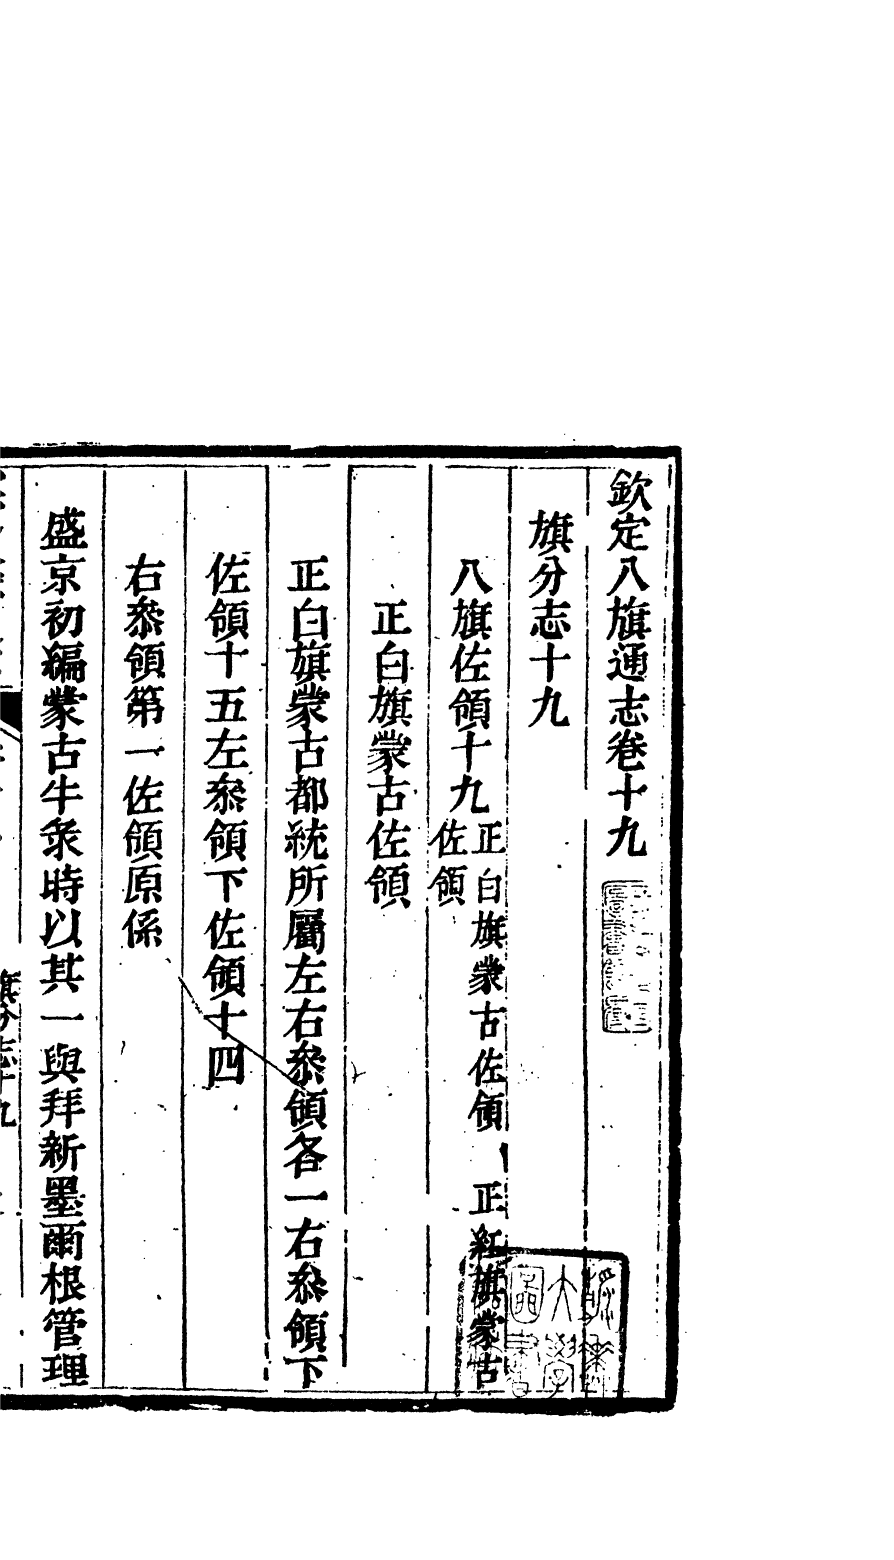 欽定八旗通志卷十九
旗分志十九
八旗佐領十九
正白旗蒙古佐領 正紅旗蒙古
佐領
正白旗蒙古佐領
正白旗蒙古都統所屬左右叅領各一右叅領下
佐領十五左叅領下佐領十四
右叅領第一佐領原係
盛京初編蒙古牛彔時以其一與拜新墨爾根管理
旗分志十九